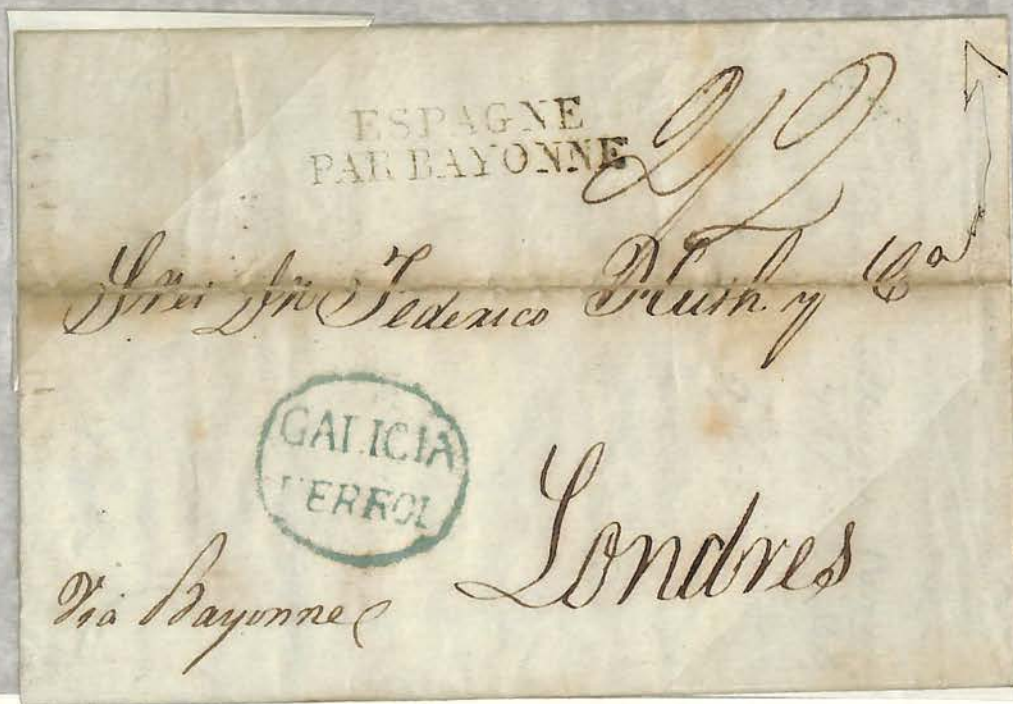 ESPAGNE
PAR BAYONNE
2/2
Sres Dn Federico Huth y Ca
GALICIA
FERROL
Londres
Via Bayonne